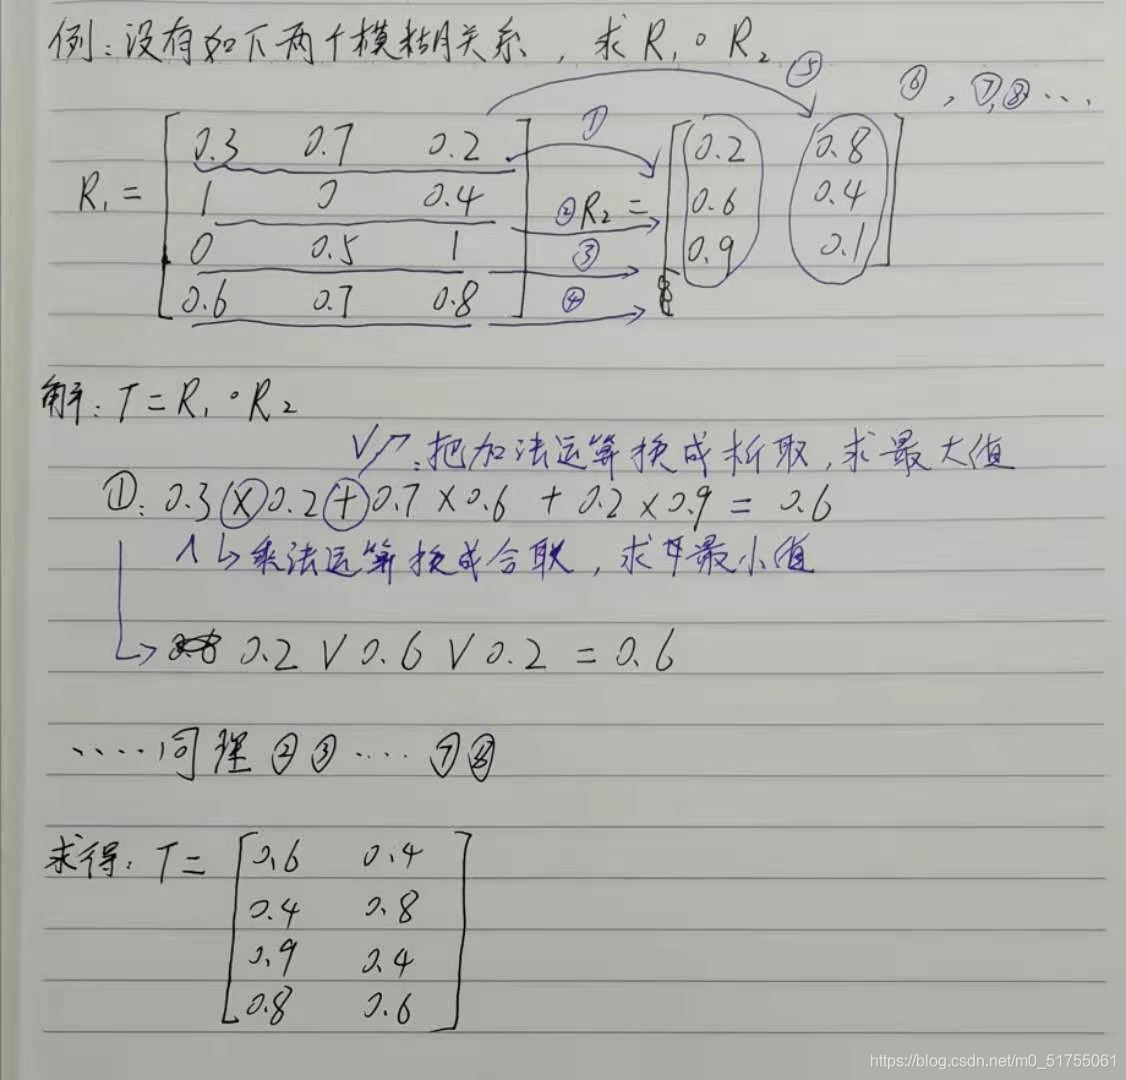 例:没有如下两个模糊关系,求R₁∘R₂
⑤ ⑥,⑦,⑧…
R₁= [0.3 0.7 0.2] ① [0.2 0.8]
[1 0 0.4] ② R₂= [0.6 0.4]
[0 0.5 1] ③ [0.9 0.1]
[0.6 0.7 0.8] ④
解:T=R₁∘R₂
∨↗:把加法运算换成析取,求最大值
①:0.3×0.2+0.7×0.6+0.2×0.9=0.6
∧↳乘法运算换成合取,求最小值
↳0.2∨0.6∨0.2=0.6
……同理②③……⑦⑧
求得:T= [0.6 0.4]
[0.4 0.8]
[0.9 0.4]
[0.8 0.6]
https://blog.csdn.net/m0_51755061